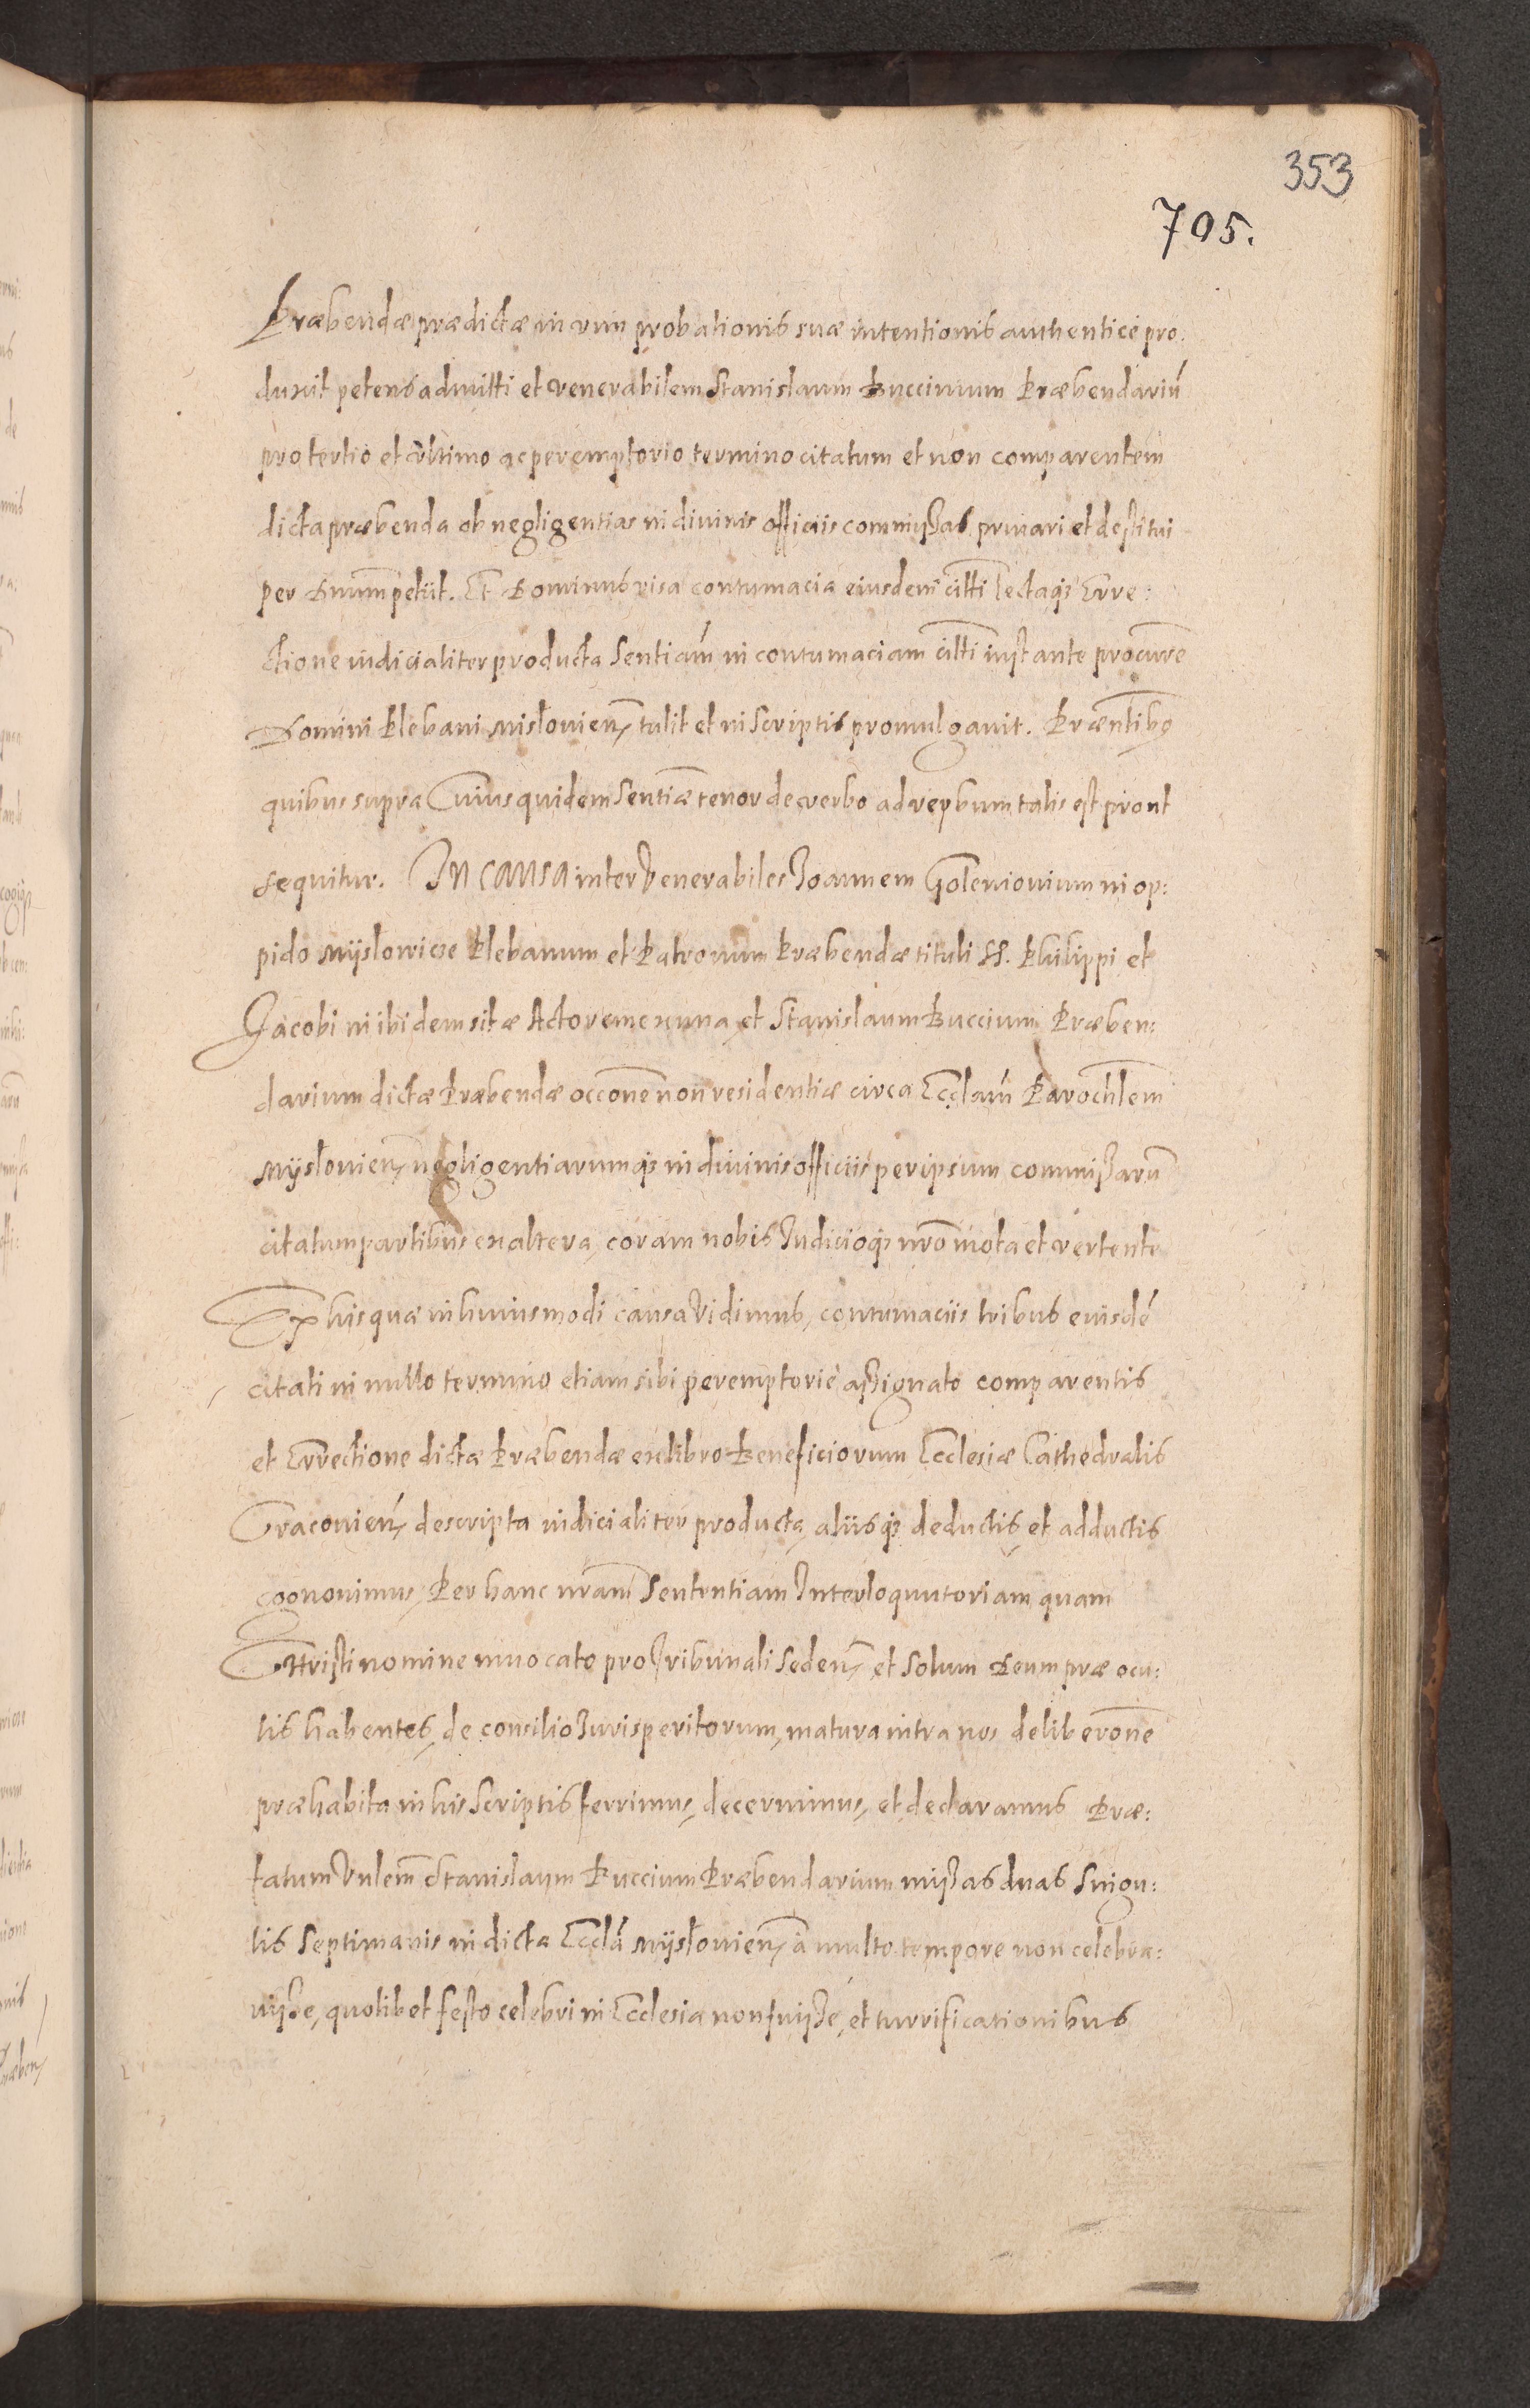 353
705.
Præbendæ prædictæ in vim probationis suæ intentionis authenticè pro:
duxit petens admitti et venerabilem Stanislaum Buccinum Præbendariũ
pro tertio et ultimo ac peremptorio termino citatum et non comparentem
dicta præbenda ob negligentias in diuinis officiis commißas priuari et destitui
per Dnum petiit. Et Dominus visa contumacia eiusdem citti lectaq₃ Erre:
ctione iudicialiter producta Sentiam in contumaciam citti instante procure
Domini Plebani Mislouien, tulit et in Scriptis promulgauit. Præntibq
quibus supra Cuius quidem Sentiæ tenor de verbo ad verbum talis est prout
sequitur. In causa inter Venerabiles Joannem Goleniouium in op:
pido Myslowice Plebanum et Patronum Præbendæ tituli SS. Philippi et
Jacobi in ibidem sitæ Actorem ex una, et Stanislaum Buccium Præben:
darium dictæ Præbendæ occone non residentiæ circa Ecclam Parochlem
Myslouien, negligentiarumq₃ in diuinis officiis per ipsum commißarũ
citatum partibus ex altera, coram nobis Judicioq₃ nro mota et vertente
Ex his quæ in huiusmodi causa Vidimus, contumaciis tribus eiusdẽ
citati in nullo termino etiam sibi peremptoriè aßignato comparentis
et Errectione dictæ Præbendæ ex libro Beneficiorum Ecclesiæ Cathedralis
Cracouien, descripta iudicialiter producta, aliisq₃ deductis, et adductis
cognouimus, Per hanc nram Sententiam Interloquutoriam quam
Christi nomine inuocato pro Tribunali Seden, et Solum Deum præ ocu:
lis habentes, de consilio Jurisperitorum, matura intra nos deliberone
præhabita in his Scriptis ferrimus, decernimus, et declaramus Præ:
fatum Vnlem Stanislaum Buccium Præbendarium mißas duas Singu:
lis Septimanis in dicta Eccla Myslouien, à multo tempore non celebra:
uiße, quolibet festo celebri in Ecclesia non fuiße, et turrificationibus